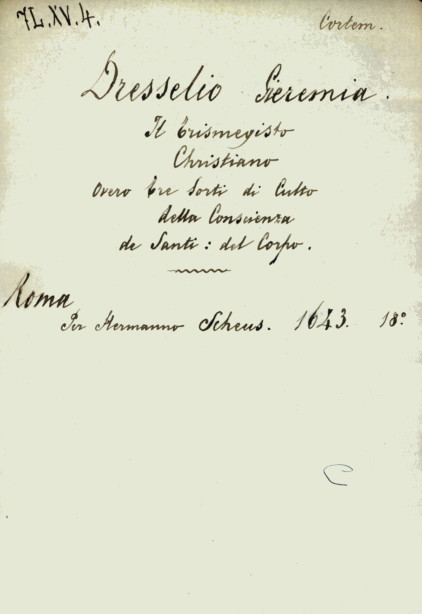 7L.XV.4.
Cortem.
Dresselio Geremia.
Il Trismegisto
Christiano
Overo tre Sorti di Culto
della Conscienza
de Santi: del Corpo.
Roma
Per Hermanno Scheus. 1643. 18°
C